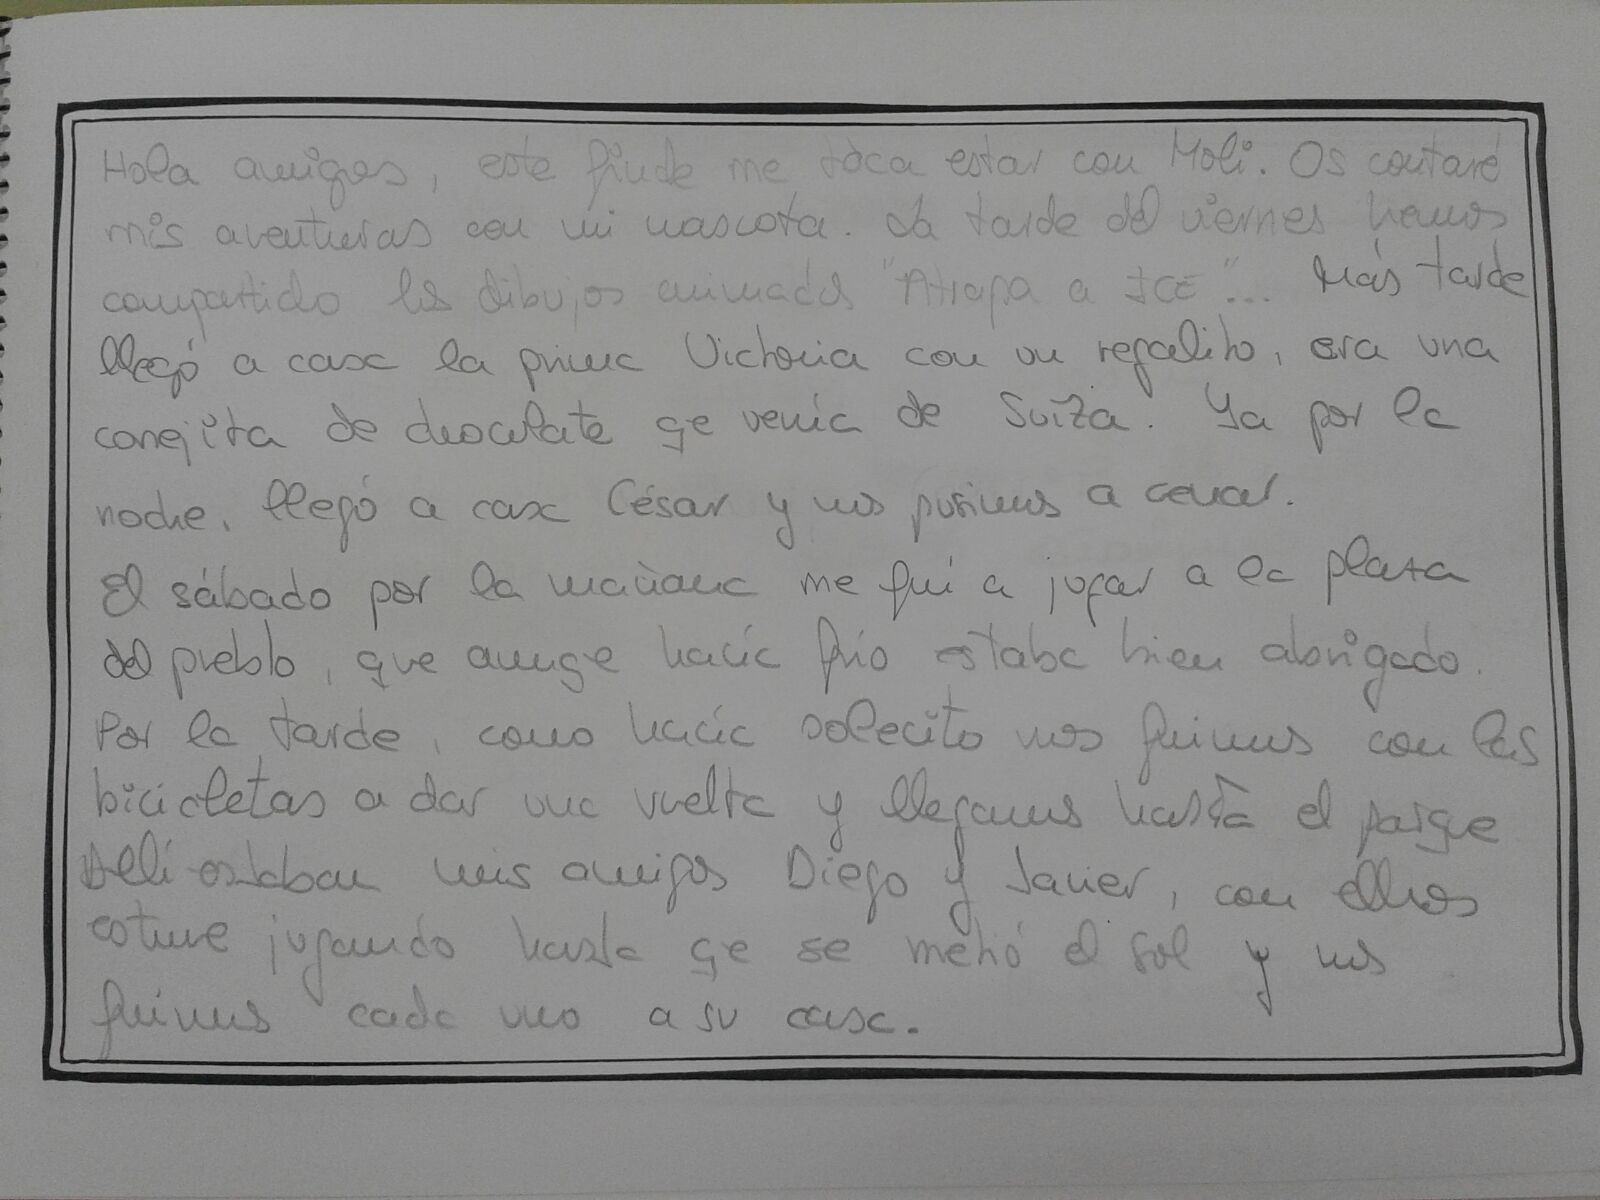 Hola amigos, este finde me toca estar con Moli. Os contaré
mis aventuras con mi mascota. La tarde del viernes hemos
compartido los dibujos animados "Atrapa a ICE"... Más tarde
llegó a casa la prima Victoria con un regalito, era una
conejita de chocolate qe venía de Suiza. Ya por la
noche, llegó a casa César y nos pusimos a cenar.
El sábado por la mañana me fui a jugar a la plaza
del pueblo, que aunqe hacía frío estaba bien abrigado.
Por la tarde, como hacía solecito nos fuimos con las
bicicletas a dar una vuelta y llegamos hasta el parque
Allí estaban mis amigos Diego y Javier, con ellos
estuve jugando hasta qe se metió el sol y nos
fuimos cada uno a su casa.